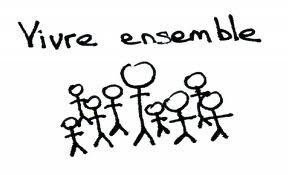 Vivre ensemble